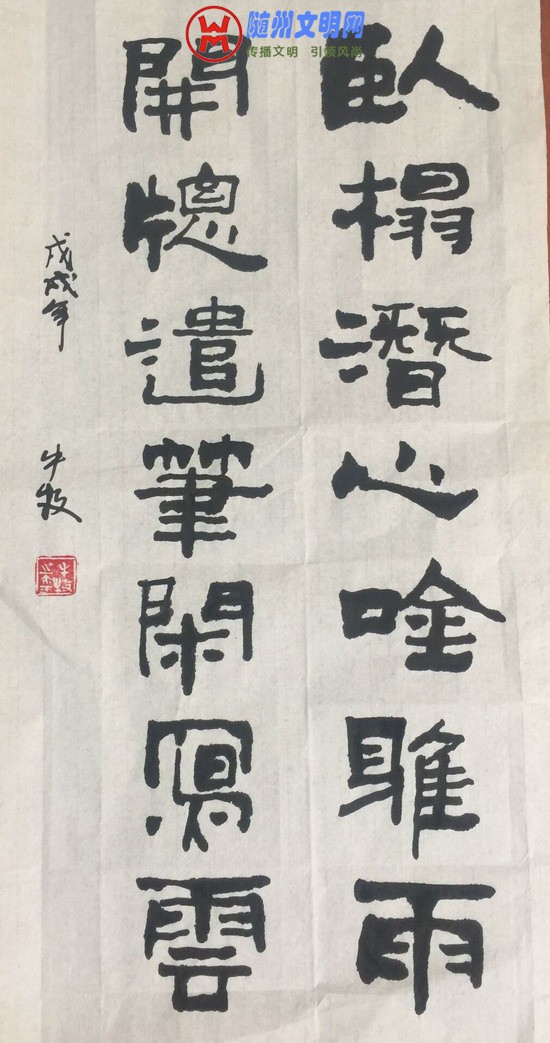 随州文明网
传播文明 引领风尚
臥榻潛心唫雎雨
開牕遣筆閑寫雲
戊戌年 牛牧